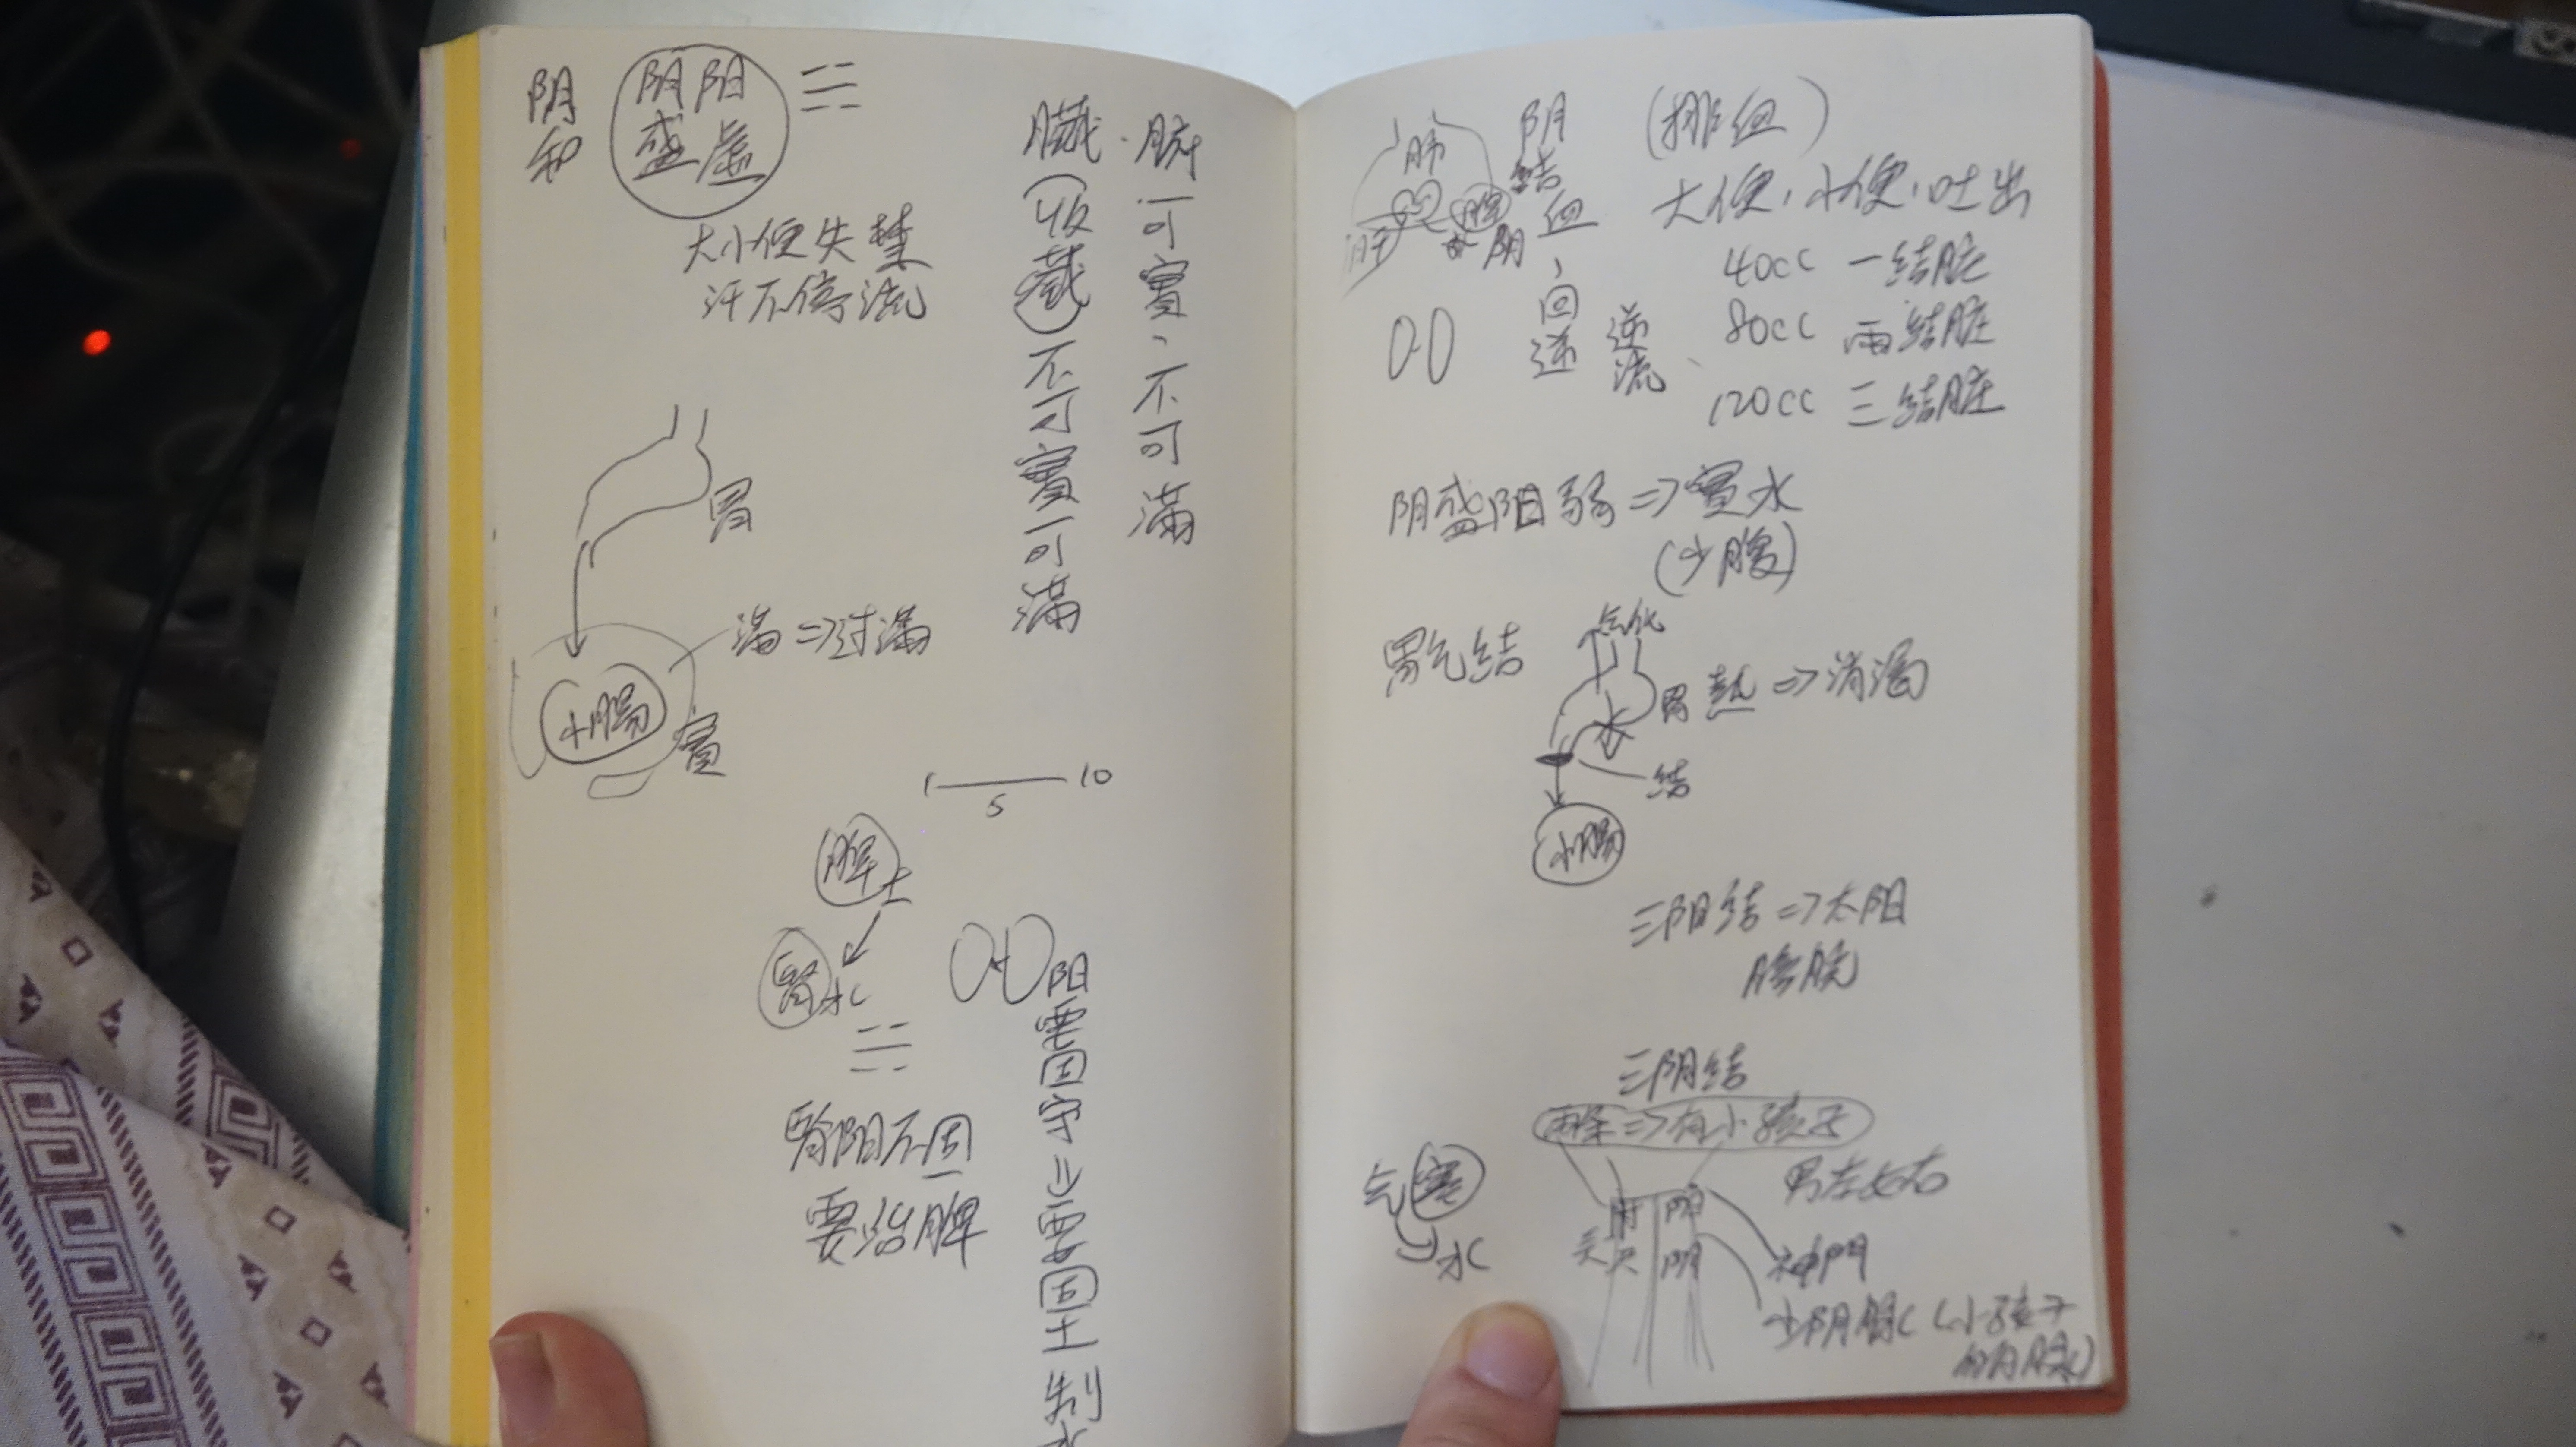 阴和
阴阳
盛虚
大小便失禁
汗不停流
腑可實、不可滿
臟(收藏)不可實可滿
胃
满=>过满
小腸
實
1 10
5
脾土
腎水
腎阳不固
要治脾
阳要固守=>要固土制水
肺
肝
脾
阴結血、回逆
逆流
(排血)
大便、小便、吐出
40cc 一结脏
80cc 两结脏
120cc 三结脏
阴盛阳弱=>實水
(少腹)
胃气结
气化
水
胃熱=>消渴
结
小腸
三阳结=>太阳
膀胱
三阴结
两条=>有小孩子
气寒
水
男左女右
肘
关
尺
阳
阴
神門
少阴脈(小孩子
的月脈)